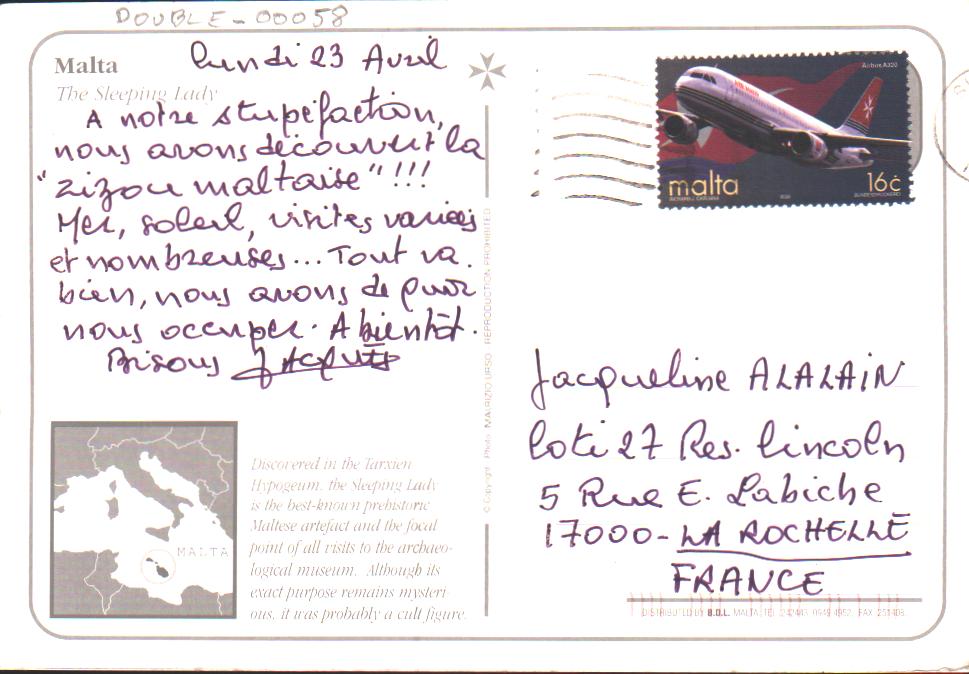 DOUBLE-00058
Malta
The Sleeping Lady
lundi 23 Avril
A notre stupéfaction,
nous avons découvert la
"zizou maltaise" !!!
Mer, soleil, visites variées
et nombreuses... Tout va
bien, nous avons de quoi
nous occuper. A bientôt.
Bisous JACQUES
Discovered in the Tarxien
Hypogeum, the Sleeping Lady
is the best-known prehistoric
Maltese artefact and the focal
point of all visits to the archaeo-
logical museum. Although its
exact purpose remains mysteri-
ous, it was probably a cult figure.
MALTA
© Copyright Photo MAURIZIO URSO REPRODUCTION PROHIBITED
Airbus A320
malta
16c
Jacqueline ALALAIN
loti 27 Res. Lincoln
5 Rue E. Labiche
17000-LA ROCHELLE
FRANCE
DISTRIBUTED BY B.D.L. MALTA, TEL.